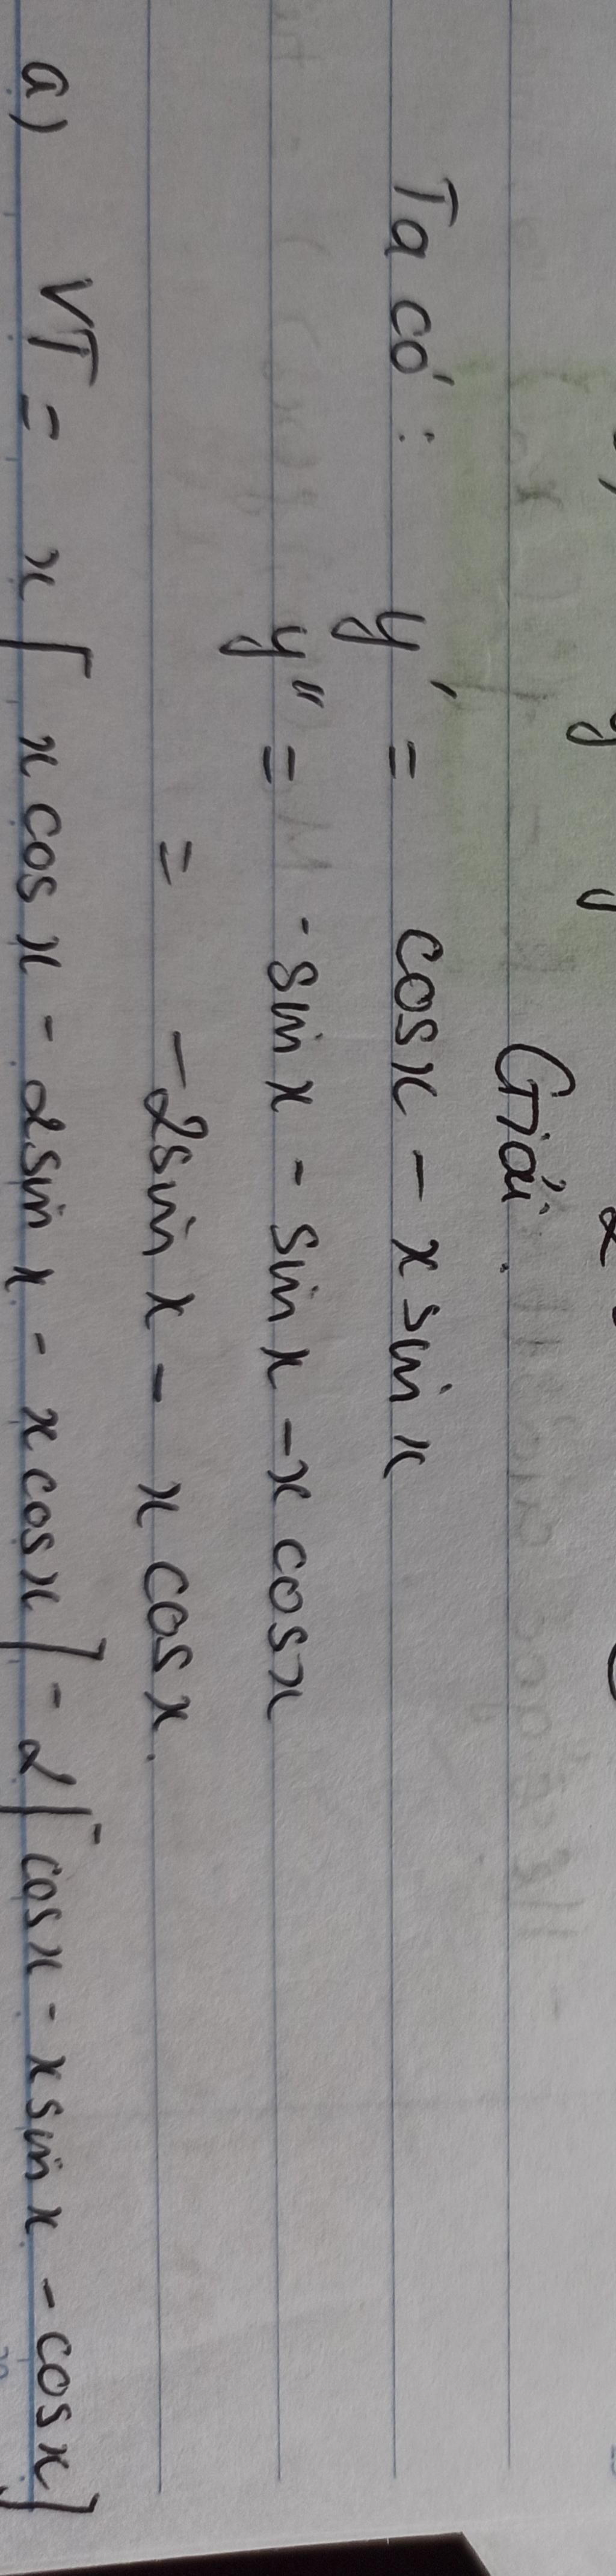 Giải.
Ta có: y' = cosx - x sin x
y" = -sin x - sin x - x cosx
= -2sin x - x cosx.
a) VT = x [ x cos x - 2sin x - x cosx ] - 2 [ cosx - x sin x - cos x ]